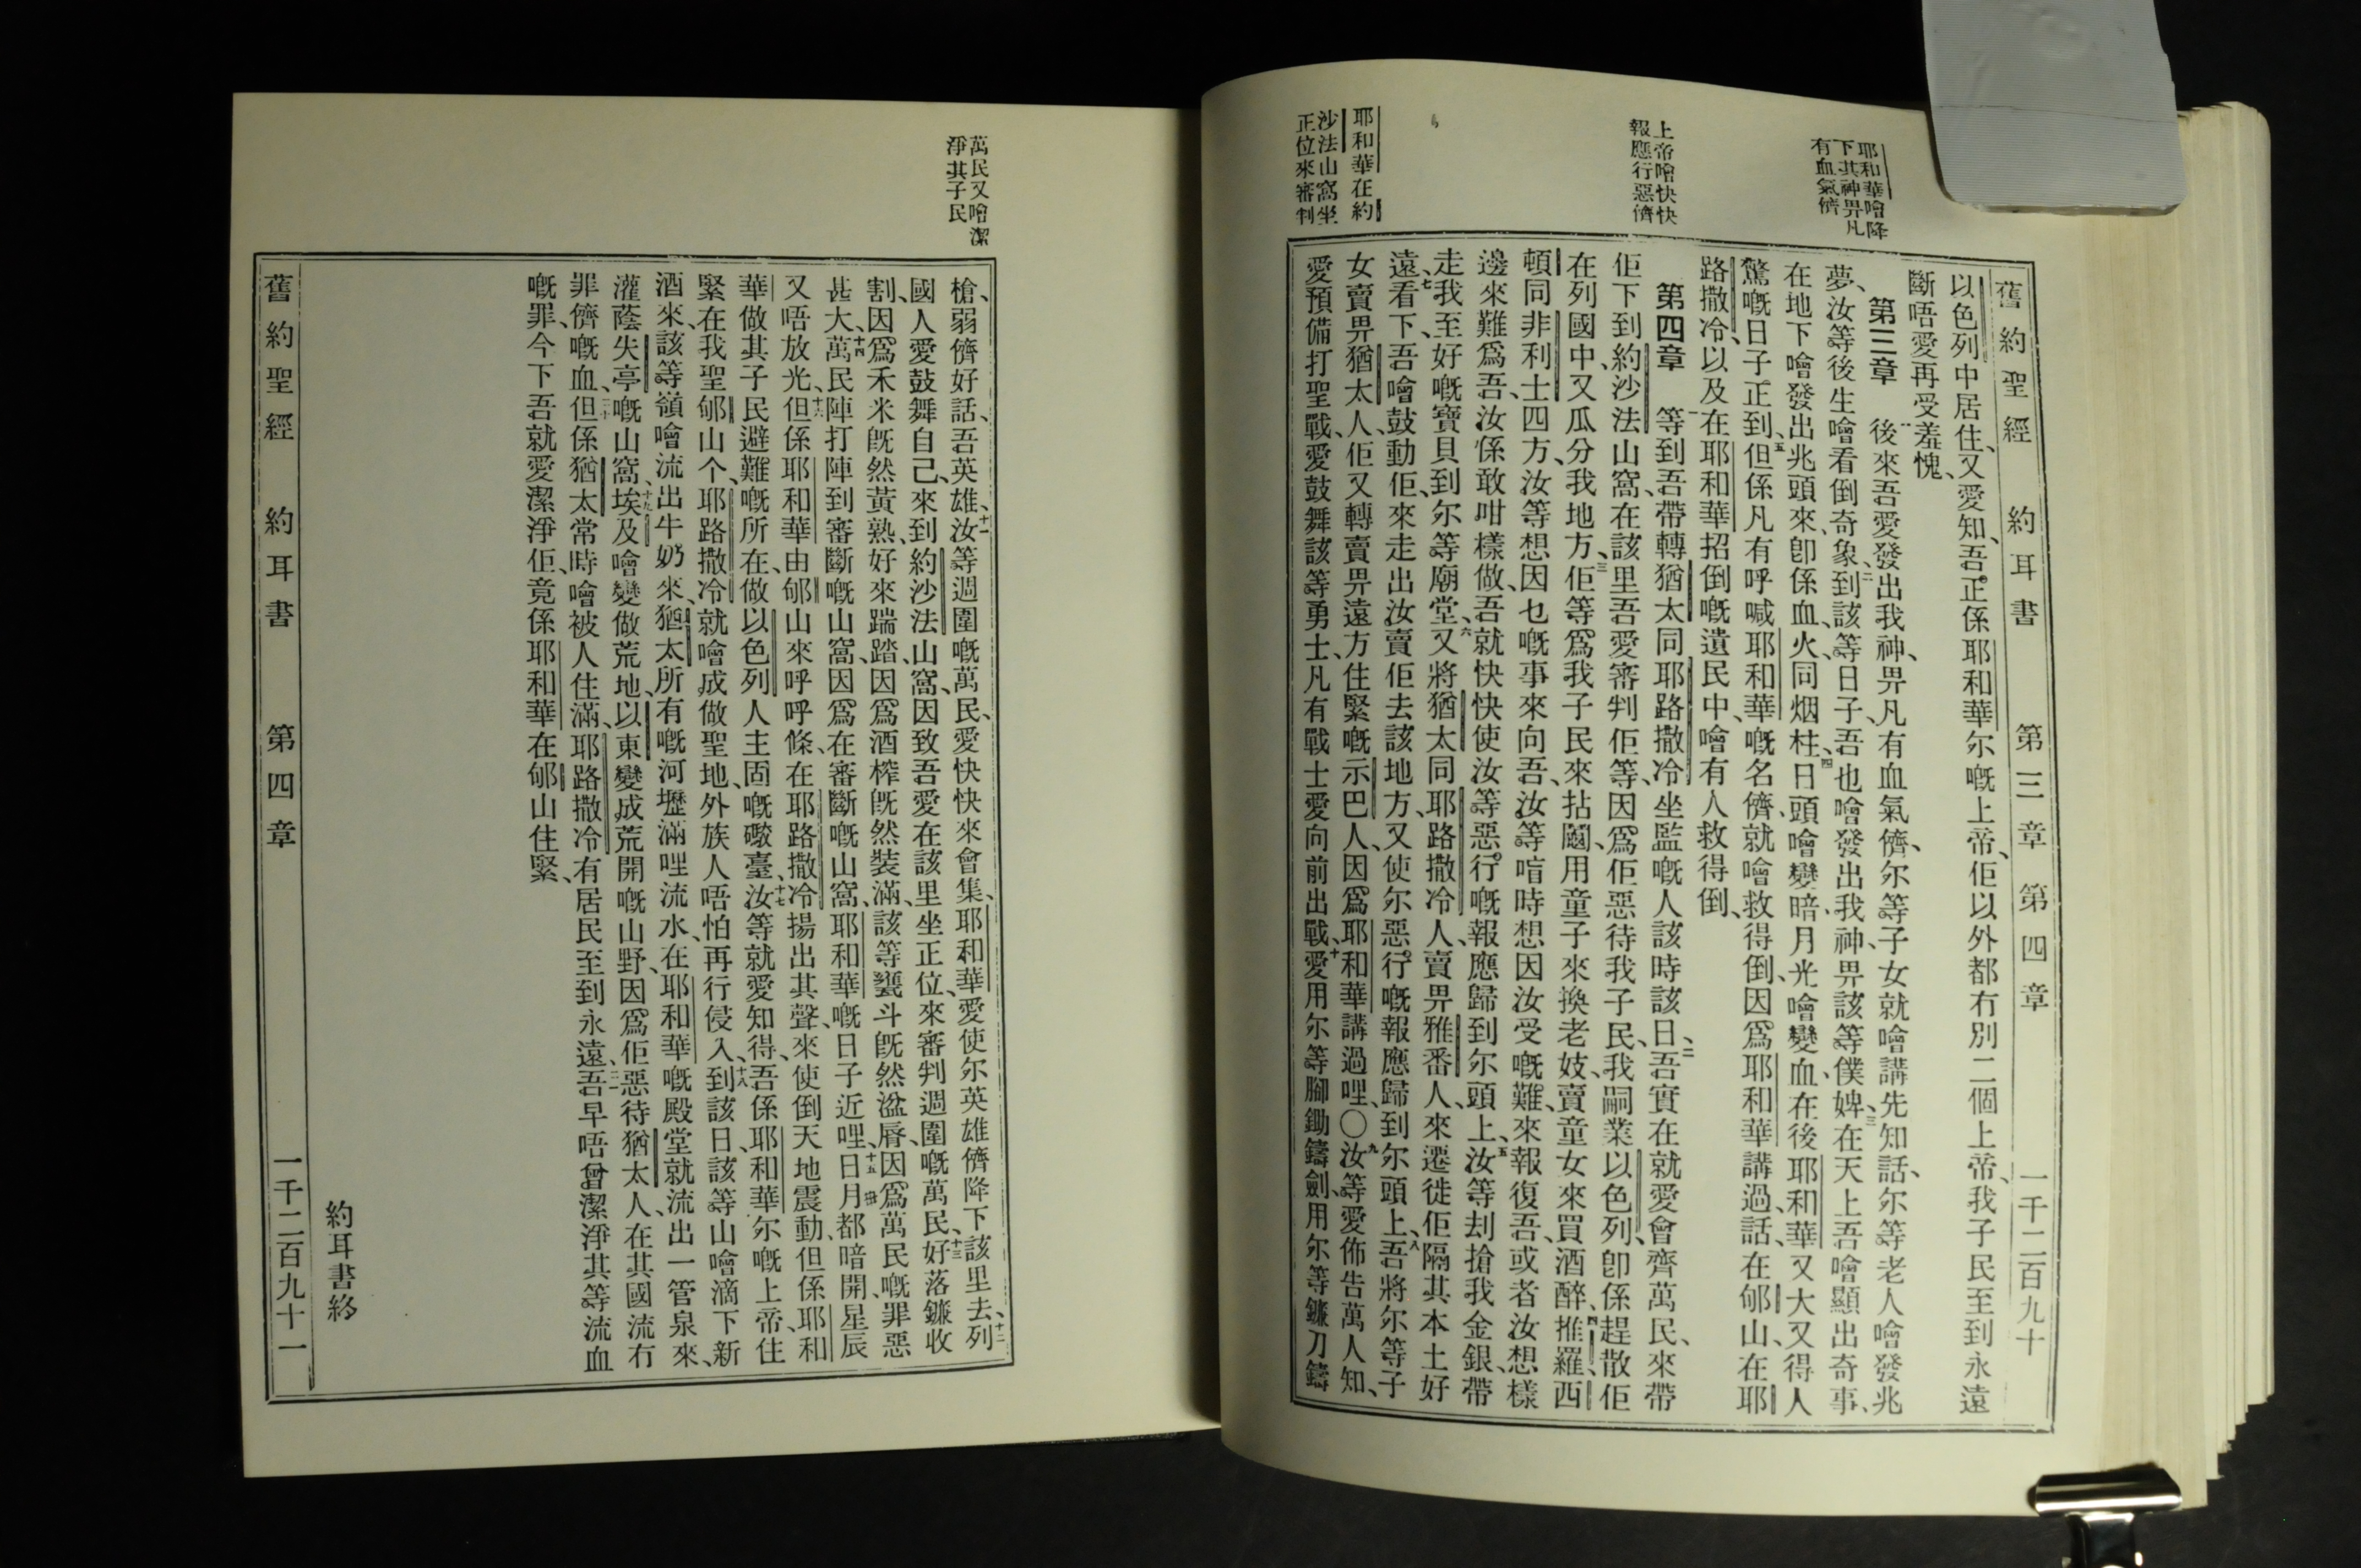 舊約聖經　約耳書　第三章　第四章　一千二百九十
耶和華噲降
下其神畀凡
有血氣儕
上帝噲快快
報應行惡儕
耶和華在約
沙法山窩坐
正位來審判
以色列中居住、又愛知、吾正係耶和華尔嘅上帝、佢以外都冇別二個上帝、我子民至到永遠
斷唔愛再受羞愧、
第三章　後來吾愛發出我神、畀凡有血氣儕、尔等子女就噲講先知話、尔等老人噲發兆
夢、汝等後生噲看倒奇象、二到該等日子、吾也噲發出我神、畀該等僕婢、三在天上吾噲顯出奇事、
在地下噲發出兆頭來、卽係血、火、同烟柱、四日頭噲變暗、月光噲變血、在後耶和華又大又得人
驚嘅日子正到、五但係凡有呼喊耶和華嘅名儕、就噲救得倒、因爲耶和華講過話、在郇山、在耶
路撒冷、以及在耶和華招倒嘅遺民中、噲有人救得倒、
第四章　一等到吾帶轉猶太同耶路撒冷坐監嘅人該時該日、二吾實在就愛會齊萬民、來帶
佢下到約沙法山窩、在該里吾愛審判佢等、因爲佢惡待我子民、我嗣業以色列、卽係趕散佢
在列國中、又瓜分我地方、三佢等爲我子民來拈鬮、用童子來換老妓、賣童女來買酒醉、四推羅西
頓同非利士四方、汝等想因乜嘅事來向吾、汝等啀時想因汝受嘅難、來報復吾、或者汝想樣
邊來難爲吾、汝係敢咁樣做、吾就快快使汝等惡行嘅報應歸到尔頭上、五汝等刦搶我金銀、帶
走我至好嘅寶貝到尔等廟堂、六又將猶太同耶路撒冷人、賣畀雅番人、來遷徙佢隔其本土好
遠、七看下、吾噲鼓動佢、來走出汝賣佢去該地方、又使尔惡行嘅報應歸到尔頭上、八吾將尔等子
女賣畀猶太人、佢又轉賣畀遠方住緊嘅示巴人、因爲耶和華講過哩、〇九汝等愛佈告萬人知、
愛預備打聖戰、愛鼓舞該等勇士、凡有戰士愛向前出戰、十愛用尔等腳鋤鑄劍、用尔等鐮刀鑄
萬民又噲潔
淨其子民
槍、弱儕好話、吾英雄、十一汝等週圍嘅萬民、愛快快來會集、耶和華愛使尔英雄儕降下該里去、十二列
國人愛鼓舞自己、來到約沙法山窩、因致吾愛在該里坐正位、來審判週圍嘅萬民、十三好落鐮收
割、因爲禾米旣然黃熟、好來踹踏、因爲酒榨旣然裝滿、該等甕斗旣然溢脣、因爲萬民嘅罪惡
甚大、十四萬民陣打陣到審斷嘅山窩、因爲在審斷嘅山窩、耶和華嘅日子近哩、十五日月都暗開、星辰
又唔放光、十六但係耶和華由郇山來呼呼條、在耶路撒冷揚出其聲、來使倒天地震動、但係耶和
華做其子民避難嘅所在、做以色列人主固嘅礮臺、十七汝等就愛知得、吾係耶和華尔嘅上帝、住
緊在我聖郇山个、耶路撒冷就噲成做聖地、外族人唔怕再行侵入、十八到該日、該等山噲滴下新
酒來、該等嶺噲流出牛奶來、猶太所有嘅河壢滿哩流水、在耶和華嘅殿堂就流出一管泉來、
灌蔭失亭嘅山窩、十九埃及噲變做荒地、以東變成荒開嘅山野、因爲佢惡待猶太人、在其國流冇
罪儕嘅血、二十但係猶太常時噲被人住滿、耶路撒冷有居民至到永遠、二一吾早唔曾潔淨其等流血
嘅罪、今下吾就愛潔淨佢、竟係耶和華在郇山住緊、
約耳書終
舊約聖經　約耳書　第四章　一千二百九十一